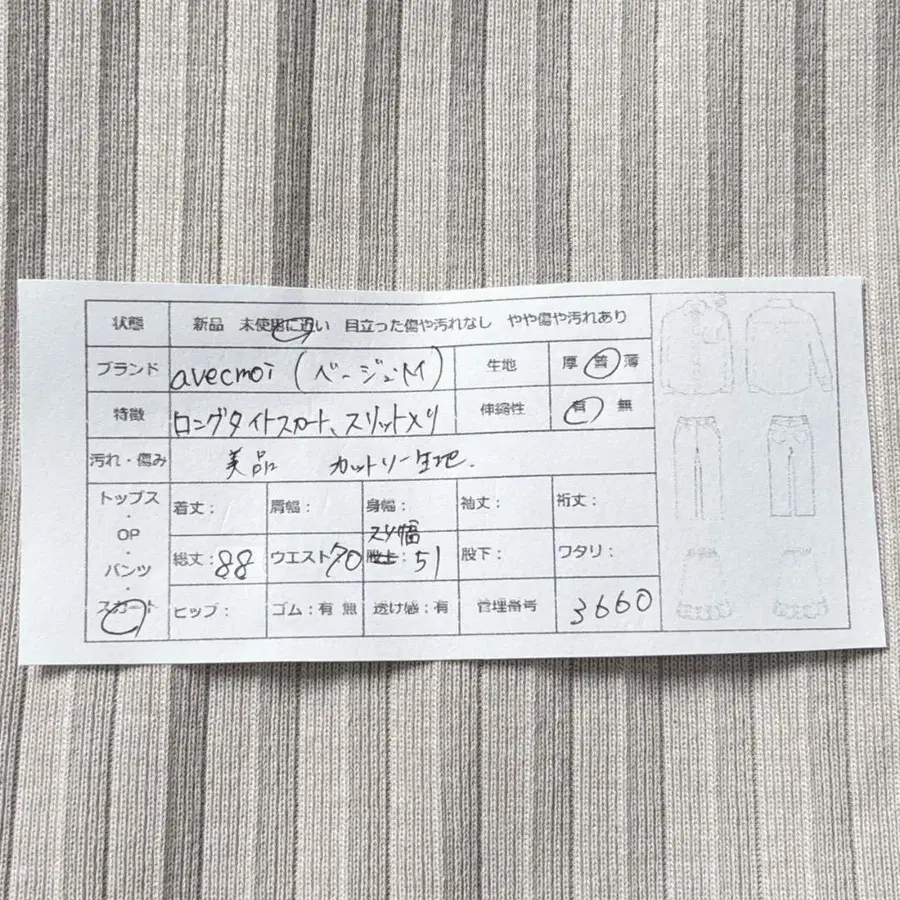 状態 新品 未使用に近い 目立った傷や汚れなし やや傷や汚れあり
ブランド avecmoi (ベージュ・M) 生地 厚 普 薄
特徴 ロングタイトスカート、スリットメリ 伸縮性 有 無
汚れ・傷み 美品 カットソー生地.
トップス・OP・パンツ・スカート
着丈: 肩幅: 身幅: 袖丈: 裄丈:
総丈:88 ウエスト70 股上: スソ幅 51 股下: ワタリ:
ヒップ: ゴム:有 無 透け感:有 管理番号 3660